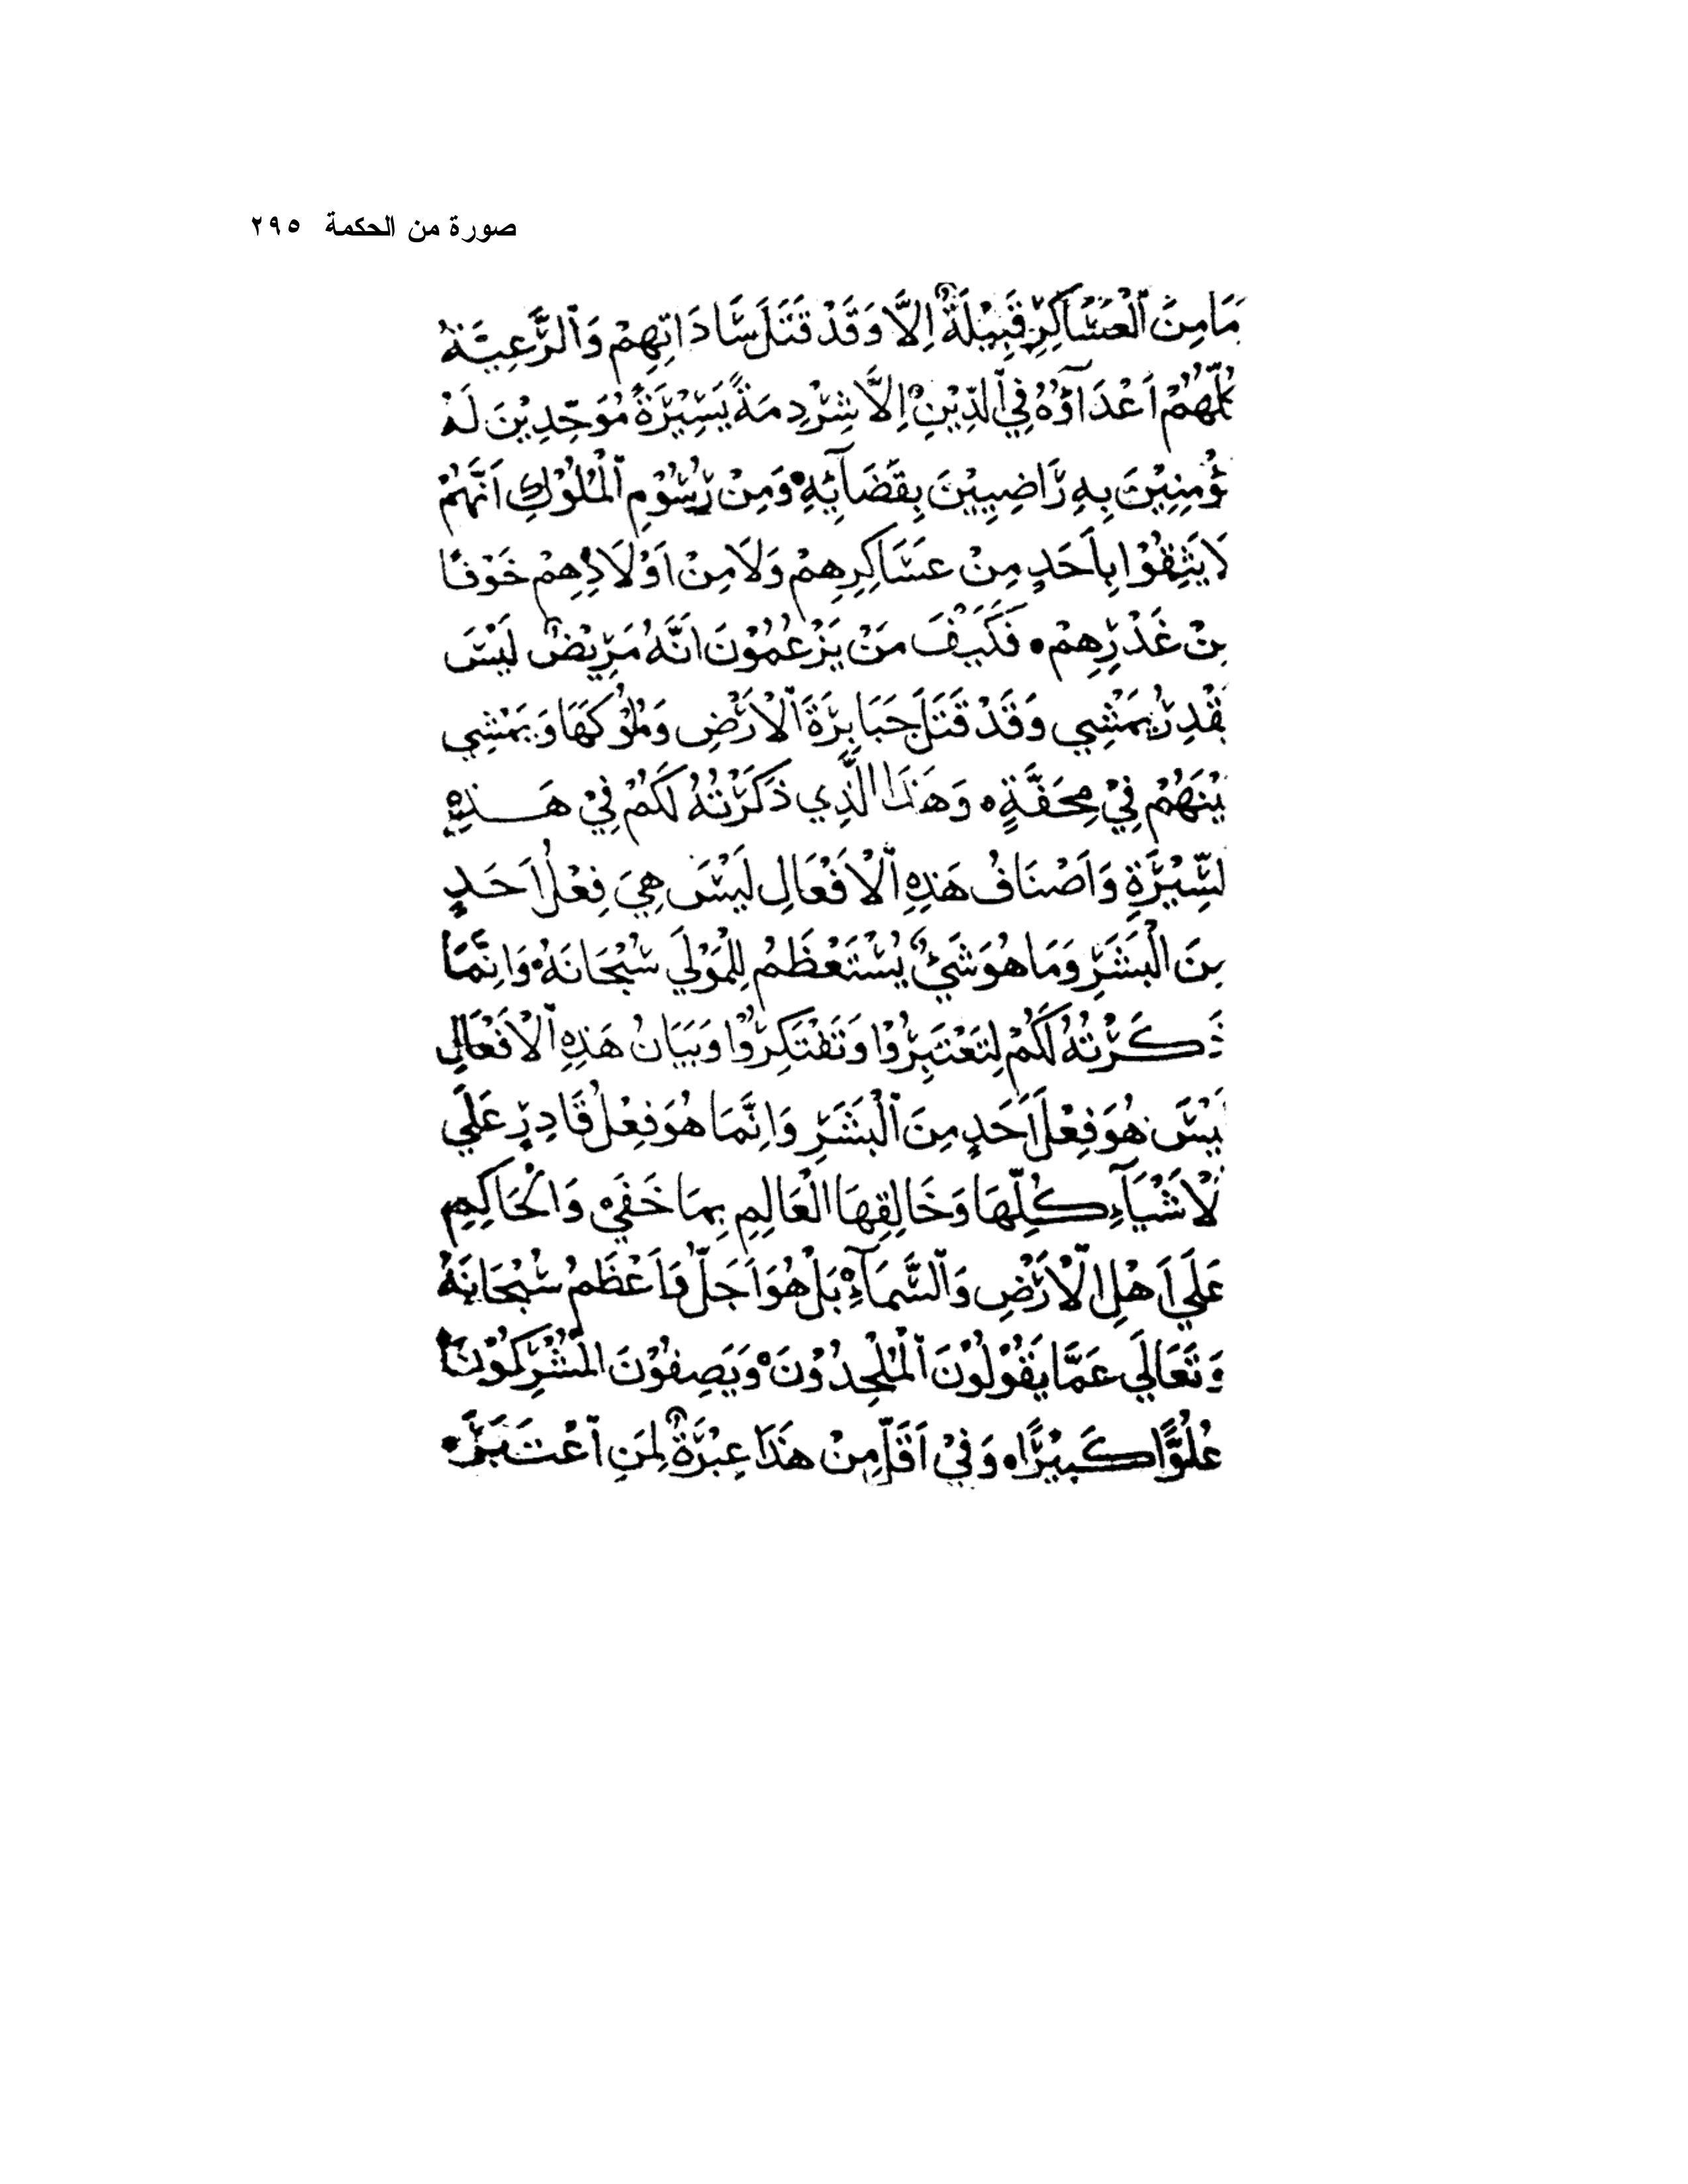 صورة من الحكمة ٢٩٥
مَا مِنَ ٱلْعَسَاكِرِ قَبِيْلَةٌ اِلَّا وَقَدْ قَتَلَ سَادَاتِهِمْ وَٱلرَّعِيَّةُ
كُلُّهُمْ اَعْدَآؤُهُ فِي ٱلدِّيْنِ اِلَّا شِرْدِمَةً يَسِيْرَةً مُوَحِّدِيْنَ لَهُ
ؤْمِنِيْنَ بِهِ رَاضِيِيْنَ بِقَضَآئِهِ وَمِنْ رُسُوْمِ ٱلْمُلُوْكِ اَنَّهُمْ
لَا يَثِقُوْا بِاَحَدٍ مِنْ عَسَاكِرِهِمْ وَلَا مِنْ اَوْلَادِهِمْ خَوْفًا
مِنْ غَدْرِهِمْ. فَكَيْفَ مَنْ يَزْعُمُوْنَ اَنَّهُ مَرِيْضٌ لَيْسَ
يَقْدِرُ يَمْشِي وَقَدْ قَتَلَ جَبَابِرَةَ ٱلْاَرْضِ وَمُلُوْكَهَا وَيَمْشِي
بَيْنَهُمْ فِيْ مِحَفَّةٍ. وَهَذَا الَّذِي ذَكَرْتُهُ لَكُمْ فِيْ هَـــذِهِ
لسِّيْرَةِ وَاَصْنَافُ هَذِهِ ٱلْاَفْعَالِ لَيْسَ هِيَ فِعْلُ اَحَدٍ
مِنَ الْبَشَرِ وَمَا هُوَ شَيْءٌ يُسْتَعْظَمُ لِلْمَوْلَي سُبْحَانَهُ وَاِنَّمَا
ذَكَرْتُهُ لَكُمْ لِتَعْتَبِرُوْا وَتَفْتَكِرُوْا وَبَيَانُ هَذِهِ ٱلْاَفْعَالِ
لَيْسَ هُوَ فِعْلَ اَحَدٍ مِنَ ٱلْبَشَرِ وَاِنَّمَا هُوَ فِعْلُ قَادِرٍ عَلَي
لْاَشْيَآءِ كُلِّهَا وَخَالِقِهَا الْعَالِمِ بِمَا خَفَيْ وَالْحَاكِمِ
عَلَي اَهْلِ الْاَرْضِ وَٱلسَّمَآءِ بَلْ هُوَ اَجَلُّ وَاَعْظَمُ سُبْحَانَهُ
وَتَعَالَي عَمَّا يَقُوْلُوْنَ ٱلْمُلْحِدُوْنَ وَيَصِفُوْنَ الْمُشْرِكُوْنَ
عُلُوًّا كَبِيْرًا. وَفِيْ اَقَلِّ مِنْ هَذَا عِبْرَةٌ لِمَنِ ٱعْتَبَرَ.